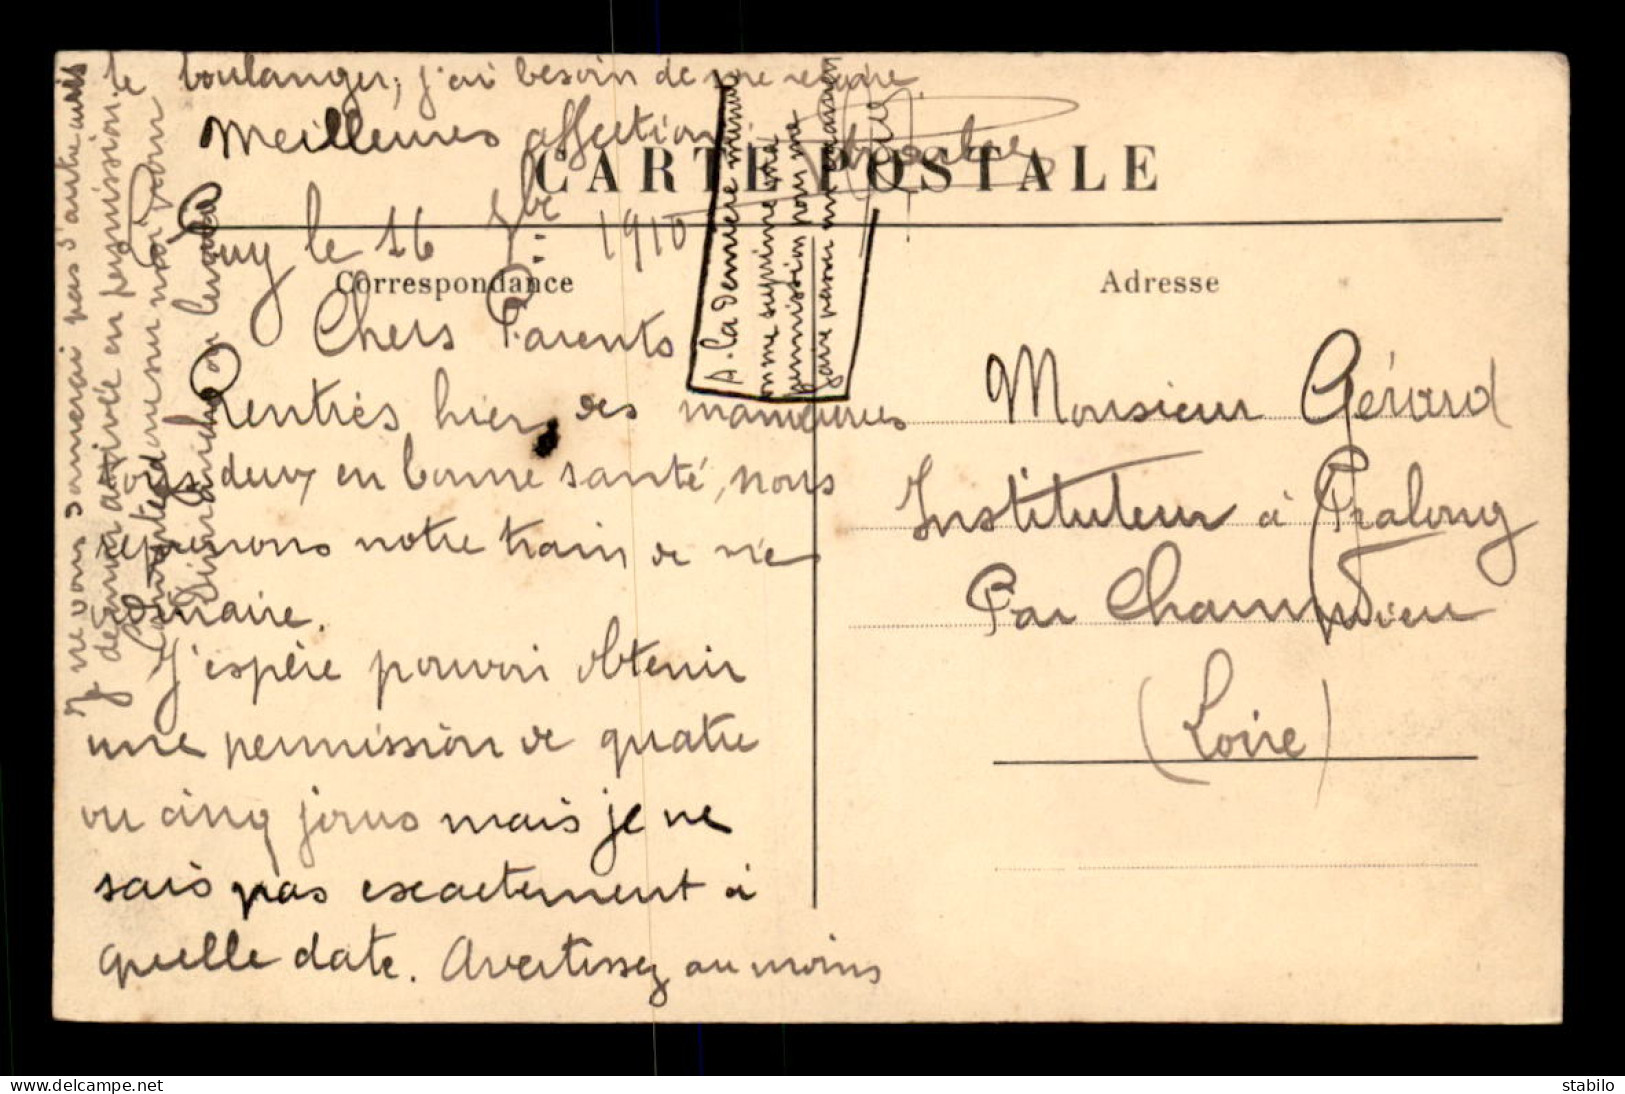 CARTE POSTALE
Correspondance
Adresse
Puy le 16 7bre 1910
Chers Parents
Rentrés hier des manœuvres
tous deux en bonne santé, nous
reprenons notre train de vie
ordinaire.
J'espère pouvoir obtenir
une permission de quatre
ou cinq jours mais je ne
sais pas exactement à
quelle date. Avertissez au moins
le boulanger; j'ai besoin de me refaire.
Meilleures affections
Je ne vous donnerai pas d'autre avis
de mon arrivée en permission.
Comptez donc sur moi pour
dimanche ou lundi
A la dernière minute
on me supprime ma
permission pour me
faire passer un examen
Monsieur Gérard
Instituteur à Pralong
Par Champdieu
(Loire)
www.delcampe.net
stabilo